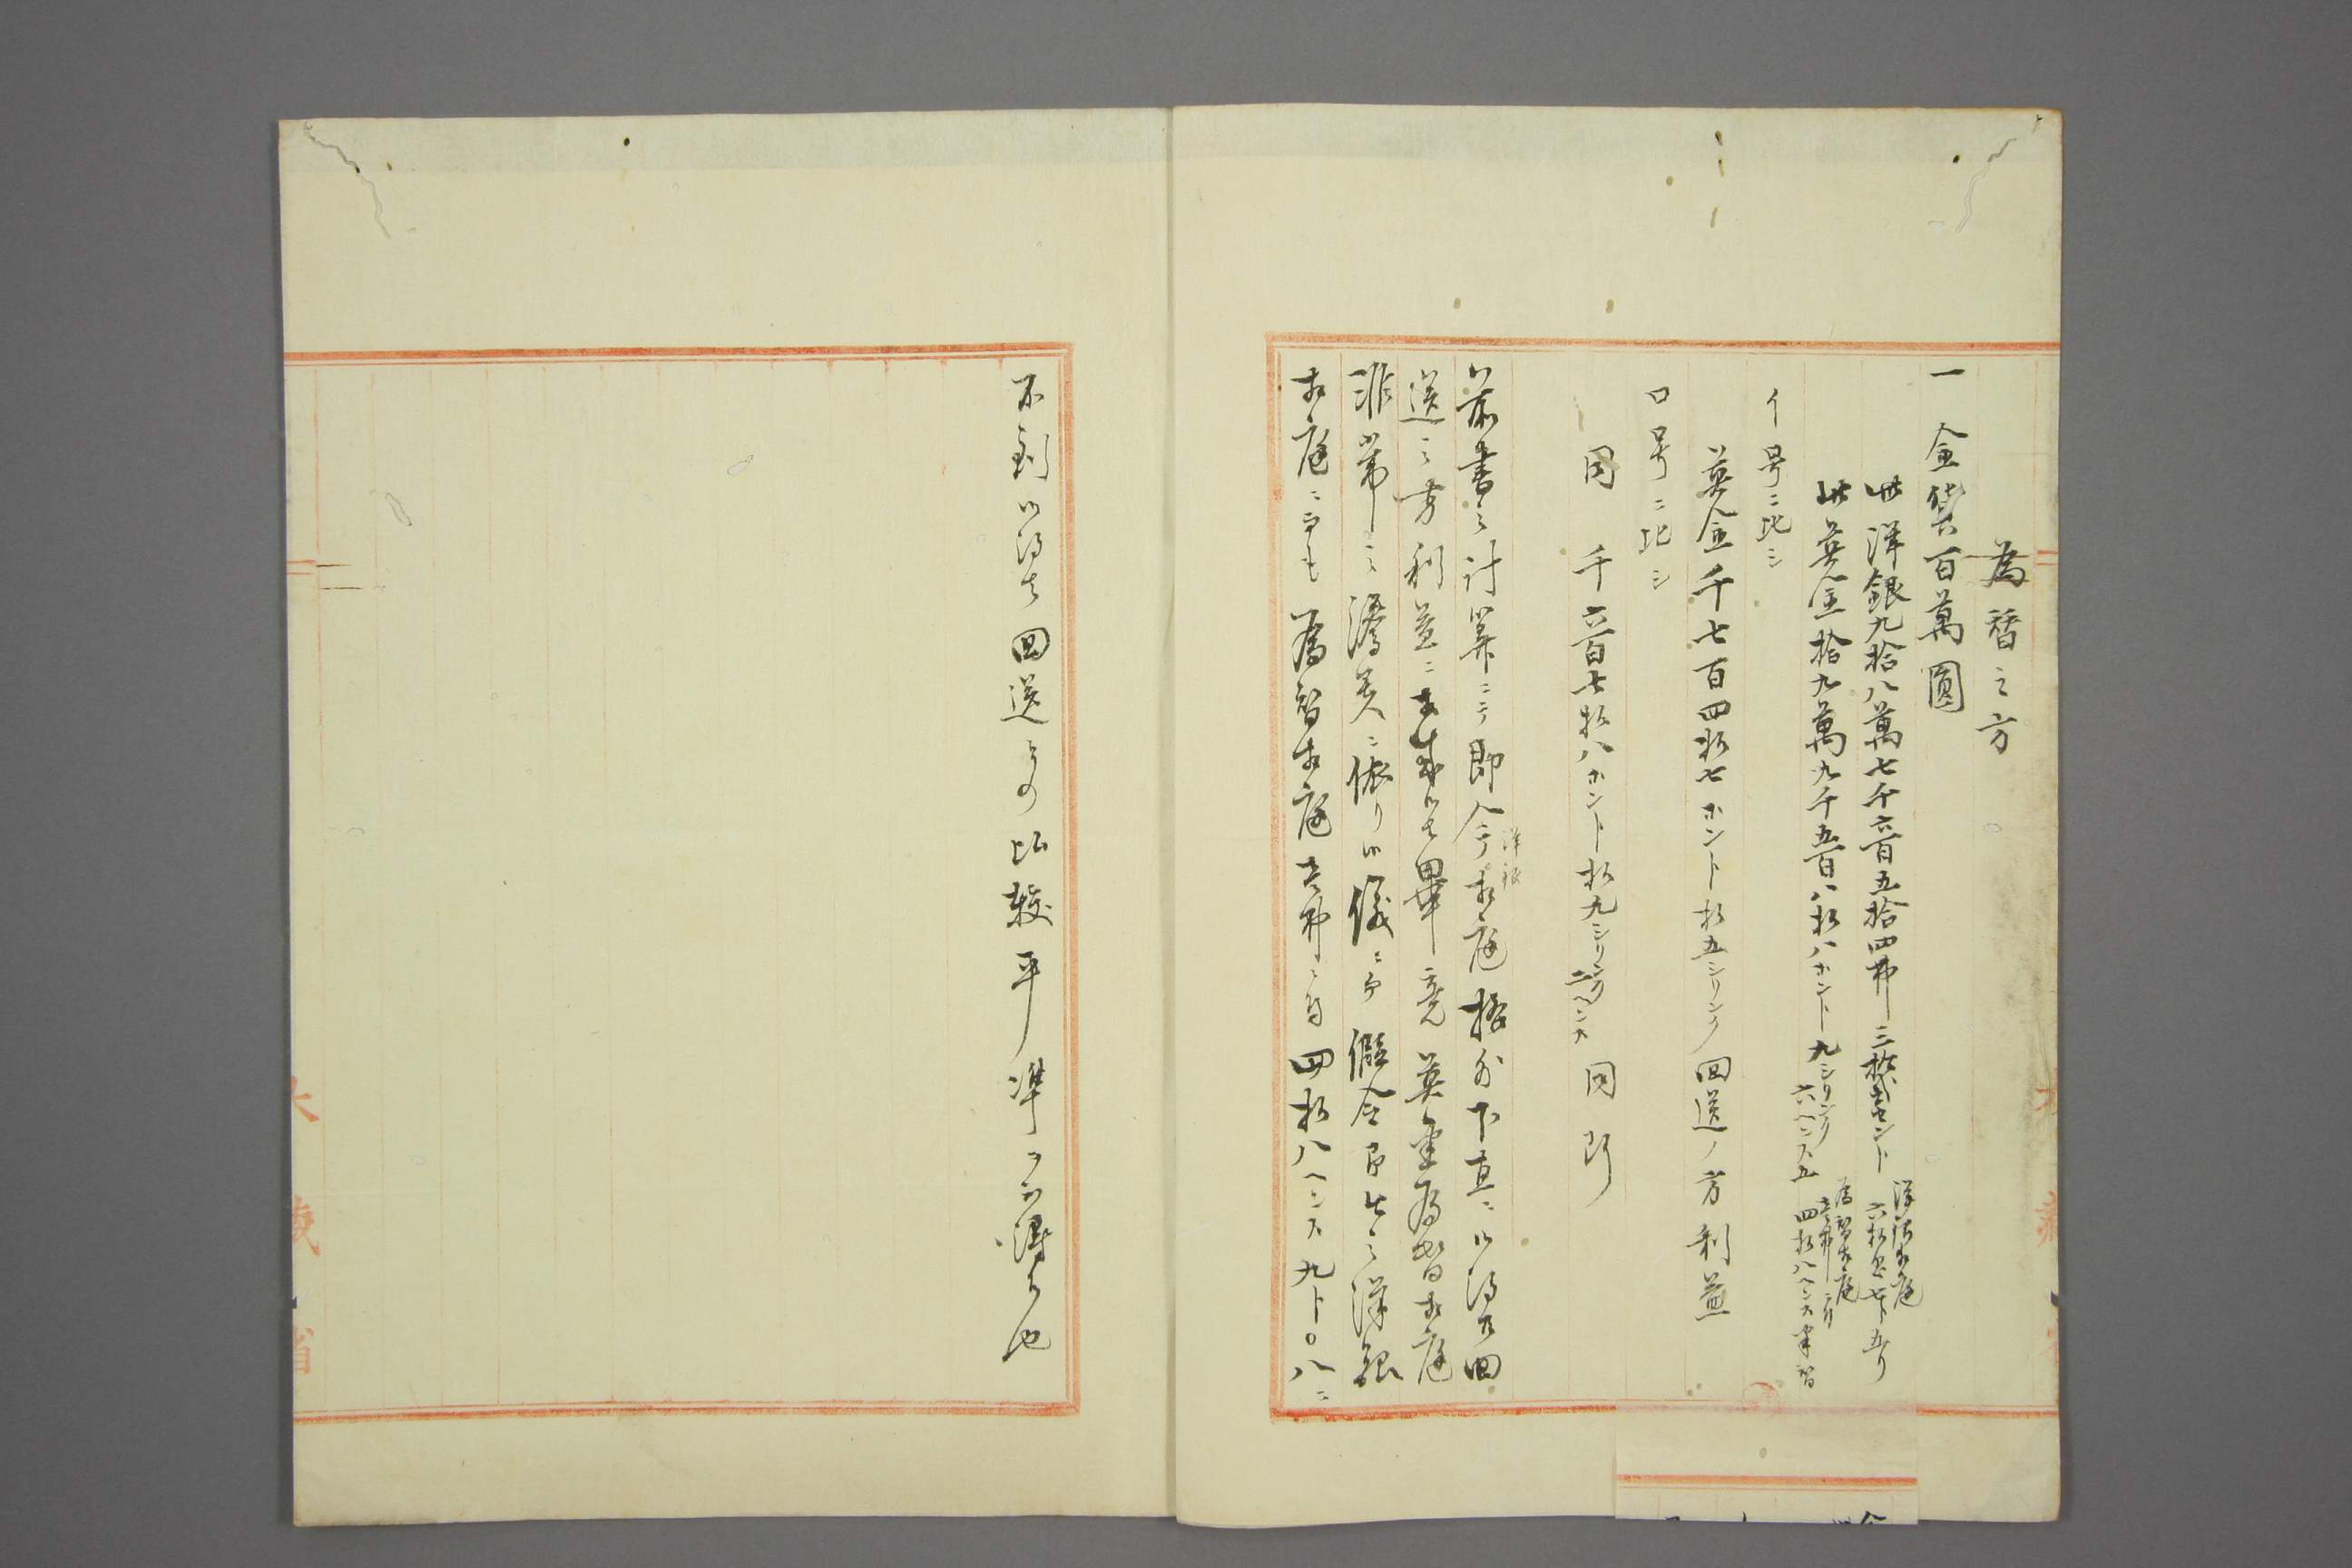 為替之方
一金貨百萬圓
此洋銀九拾八萬七千六百五拾四弗三拾貳セント
洋銀相庭
六拾目七卜五リ
此英金拾九萬九千五百八拾八ホント九シリング
六ヘンス五
為替相庭
壱弗ニ付
四拾八ヘンス半替
イ号ニ比シ
英金千七百四拾七ホント拾五シリング回送ノ方利益
ロ号ニ比シ
同千六百七拾八ホント拾九シリング
二ヘンス
同断
前書之計算ニテ即今
洋銀
相庭格外下直ニ候得ハ回
送之方利益ニ相成候得共畢竟英金為替相庭
非常之騰貴ニ依リ候儀ニ而假令目今之洋銀
相庭ニ而も為替相庭壱弗ニ付四拾八ヘンス九卜〇八ニ
不到候得は回送との比較平準ヲ不得候也
大蔵省